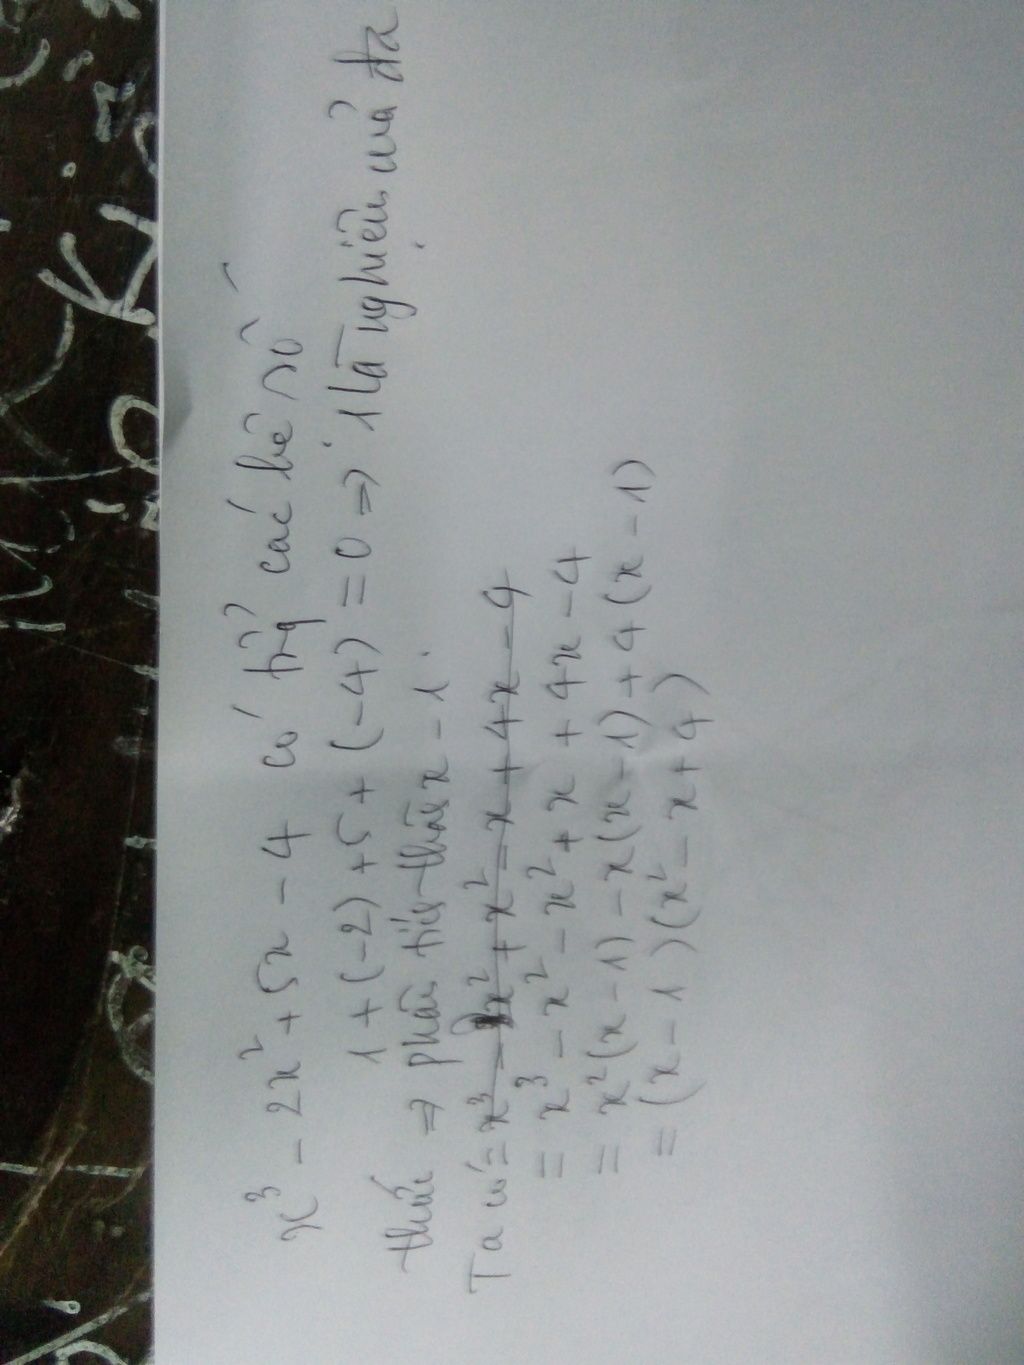 x³ - 2x² + 5x - 4 có tổng các hệ số
1 + (-2) + 5 + (-4) = 0 ⇒ 1 là nghiệm của đa
thức ⇒ phân tích thấy x - 1.
Ta có = x³ - x² + x² - x + 4x - 4
= x³ - x² - x² + x + 4x - 4
= x²(x - 1) - x(x - 1) + 4(x - 1)
= (x - 1)(x² - x + 4)